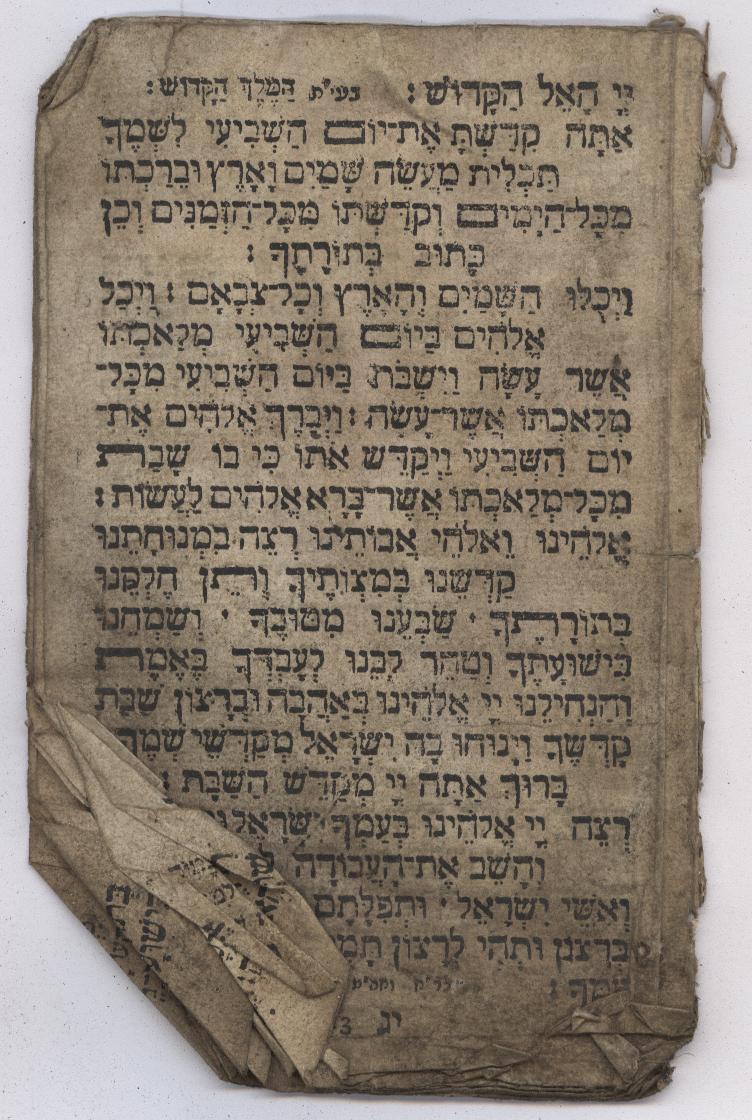 יְיָ הָאֵל הַקָּדוֹשׁ : בעי״ת הַמֶּלֶךְ הַקָּדוֹשׁ :
אַתָּה קִדַּשְׁתָּ אֶת־יוֹם הַשְּׁבִיעִי לִשְׁמֶךָ
תַּכְלִית מַעֲשֵׂה שָׁמַיִם וָאָרֶץ וּבֵרַכְתּוֹ
מִכָּל־הַיָּמִים וְקִדַּשְׁתּוֹ מִכָּל־הַזְּמַנִּים וְכֵן
כָּתוּב בְּתוֹרָתֶךָ :
וַיְכֻלּוּ הַשָּׁמַיִם וְהָאָרֶץ וְכָל־צְבָאָם : וַיְכַל
אֱלֹהִים בַּיּוֹם הַשְּׁבִיעִי מְלַאכְתּוֹ
אֲשֶׁר עָשָׂה וַיִּשְׁבֹּת בַּיּוֹם הַשְּׁבִיעִי מִכָּל־
מְלַאכְתּוֹ אֲשֶׁר־עָשָׂה : וַיְבָרֶךְ אֱלֹהִים אֶת־
יוֹם הַשְּׁבִיעִי וַיְקַדֵּשׁ אֹתוֹ כִּי בוֹ שָׁבַת
מִכָּל־מְלַאכְתּוֹ אֲשֶׁר־בָּרָא אֱלֹהִים לַעֲשׂוֹת :
אֱלֹהֵינוּ וֵאלֹהֵי אֲבוֹתֵינוּ רְצֵה בִמְנוּחָתֵנוּ
קַדְּשֵׁנוּ בְּמִצְוֹתֶיךָ וְתֵן חֶלְקֵנוּ
בְּתוֹרָתֶךָ · שַׂבְּעֵנוּ מִטּוּבֶךָ · וְשַׂמְּחֵנוּ
בִּישׁוּעָתֶךָ וְטַהֵר לִבֵּנוּ לְעָבְדְּךָ בֶּאֱמֶת
וְהַנְחִילֵנוּ יְיָ אֱלֹהֵינוּ בְּאַהֲבָה וּבְרָצוֹן שַׁבַּת
קָדְשֶׁךָ וְיָנוּחוּ בָהּ יִשְׂרָאֵל מְקַדְּשֵׁי שְׁמֶךָ
בָּרוּךְ אַתָּה יְיָ מְקַדֵּשׁ הַשַּׁבָּת :
רְצֵה יְיָ אֱלֹהֵינוּ בְּעַמְּךָ יִשְׂרָאֵל
וְהָשֵׁב אֶת־הָעֲבוֹדָה
וְאִשֵּׁי יִשְׂרָאֵל · וּתְפִלָּתָם
בְּרָצוֹן וּתְהִי לְרָצוֹן
עַמֶּךָ :
יג 3